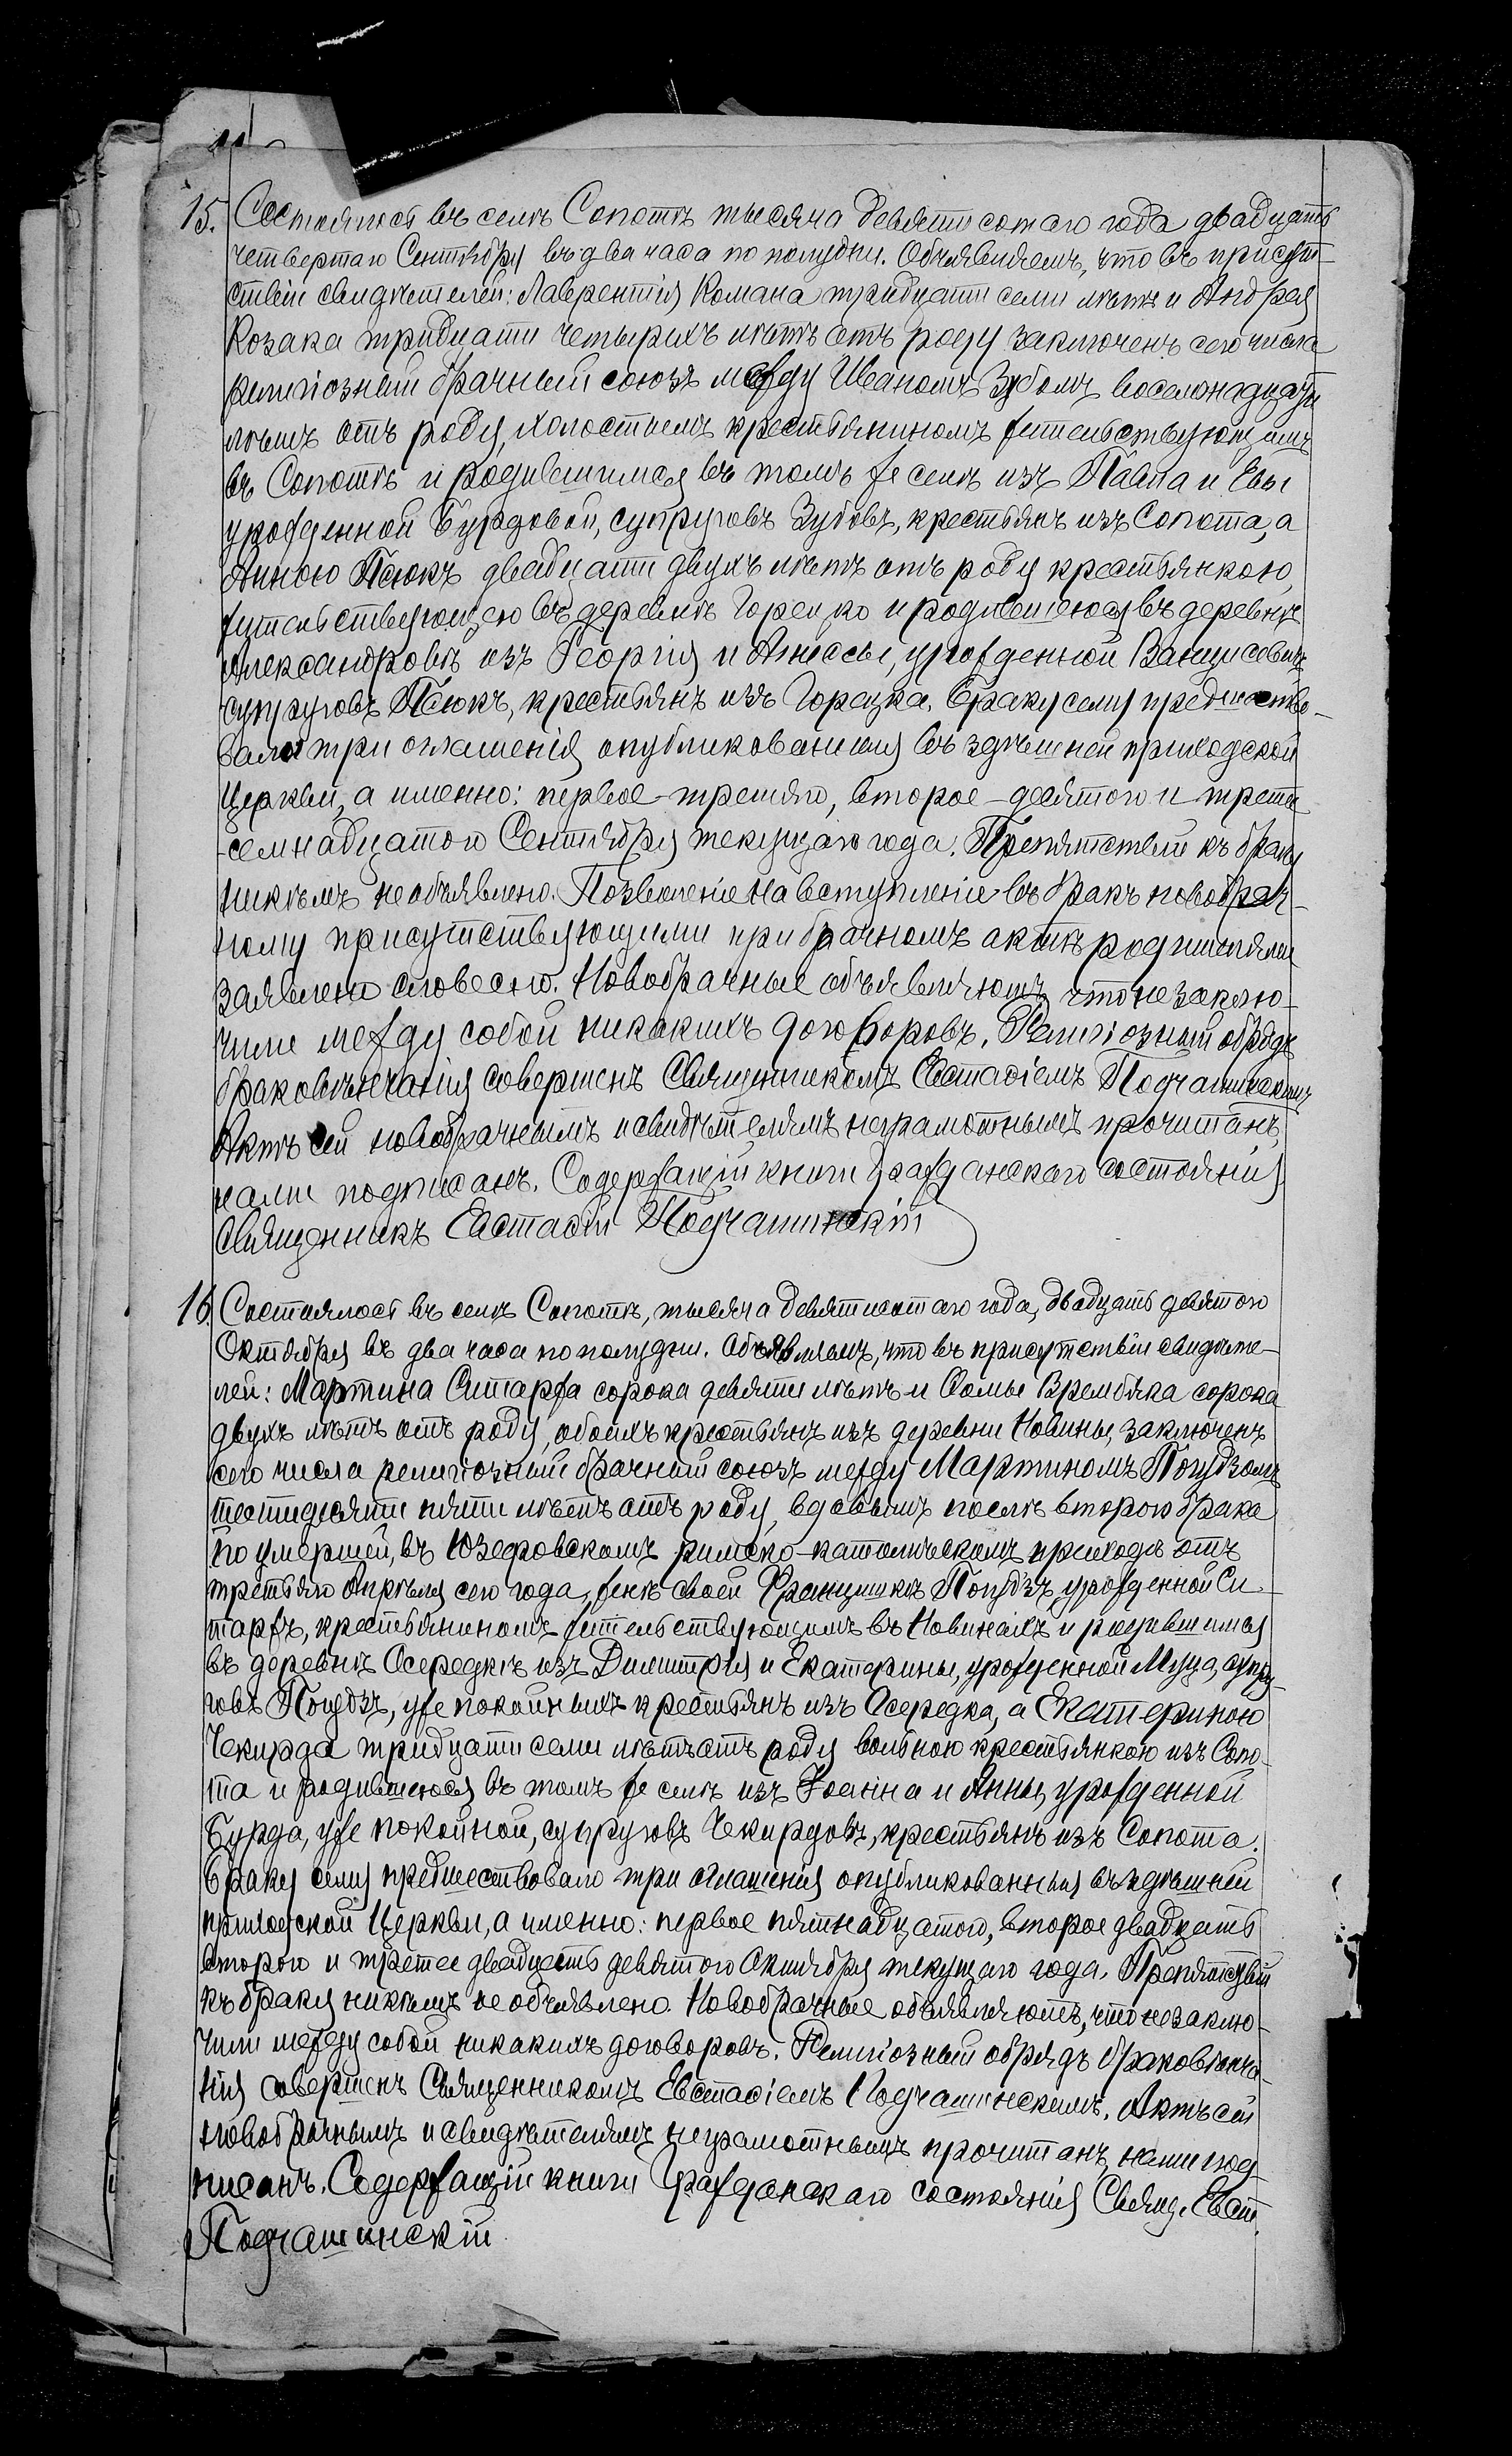 15. Состоялось въ селѣ Сопотѣ тысяча девятисотаго года двадцать
четвертаго Сентября въ два часа по полудни. Объявляемъ, что въ присут-
ствіи свидѣтелей: Лаврентія Комана тридцати семи лѣтъ и Андрея
Козака тридцати четырехъ лѣтъ отъ роду заключенъ сего числа
религіозный брачный союзъ между Иваномъ Зубомъ восемнадцати
лѣтъ отъ роду, холостымъ крестьяниномъ жительствующимъ
въ Сопотѣ и родившимся въ томъ же селѣ изъ Павла и Евы
урожденной Бурдовой, супруговъ Зубовъ, крестьянъ изъ Сопота, а
Анною Псюкъ двадцати двухъ лѣтъ отъ роду крестьянкою,
жительствующею въ деревнѣ Горецко и родившеюся въ деревнѣ
Александровѣ изъ Георгія и Агнессы, урожденной
супруговъ Псюкъ, крестьянъ изъ Горецка. Браку сему предшество-
вало три оглашенія опубликованныя въ здѣшней приходской
Церкви, а именно: первое – третьяго, второе – десятого и третье
– семнадцатого Сентября текущаго года. Препятствій къ браку
никѣмъ не объявлено. Позволеніе на вступленіе въ бракъ новобрач-
ному присутствующими при брачномъ актѣ родителями
заявлено словесно. Новобрачные объявляютъ, что не заклю-
чили между собой никакихъ договоровъ. Религіозный обрядъ
браковѣнчанія совершенъ Священникомъ Евстафіемъ Подгашинскимъ
Актъ сей новобрачнымъ и свидѣтелямъ неграмотнымъ прочитанъ,
нами подписанъ. Содержащій книги гражданскаго состоянія
Священникъ Евстафій Подгашинскій
16. Состоялось въ селѣ Сопотѣ, тысяча девятисотаго года, двадцать девятого
Октября въ два часа по полудни. Объявляемъ, что въ присутствіи свидѣте-
лей: Мартина Ситаржа сорока девяти лѣтъ и Фомы Врембяка сорока
двухъ лѣтъ отъ роду, обоихъ крестьянъ изъ деревни Новины, заключенъ
сего числа религіозный брачный союзъ между Мартиномъ Поцудзомъ
шестидесяти пяти лѣтъ отъ роду, вдовымъ послѣ второго брака
по умершей, въ Юзефовскомъ римско-католическомъ приходѣ отъ
третьяго Апрѣля сего года, женѣ своей Францишкѣ Поцудзъ, урожденной Си-
таржъ, крестьяниномъ жительствующимъ въ Новинахъ и родившимся
въ деревнѣ Осередкѣ изъ Димитрія и Екатерины, урожденной Муца, супру-
говъ Поцудзъ, уже покойныхъ крестьянъ изъ Осередка, а Екатериною
Чекирда тридцати семи лѣтъ отъ роду вольною крестьянкою изъ Сопо-
та и родившеюся въ томъ же селѣ изъ Іоанна и Анны, урожденной
Бурда, уже покойной, супруговъ Чекирдовъ, крестьянъ изъ Сопота.
Браку сему предшествовало три оглашенія опубликованныя въ здѣшней
приходской Церкви, а именно: первое пятнадцатого, второе двадцать
второго и третее двадцать девятого Октября текущаго года. Препятствій
къ браку никѣмъ не объявлено. Новобрачные объявляютъ, что не заклю-
чили между собой никакихъ договоровъ. Религіозный обрядъ браковѣнча-
нія совершенъ Священникомъ Евстафіемъ Подгашинскимъ. Актъ сей
новобрачнымъ и свидѣтелямъ неграмотнымъ прочитанъ, нами под-
писанъ. Содержащій книги Гражданскаго состоянія Священ. Евст.
Подгашинскій